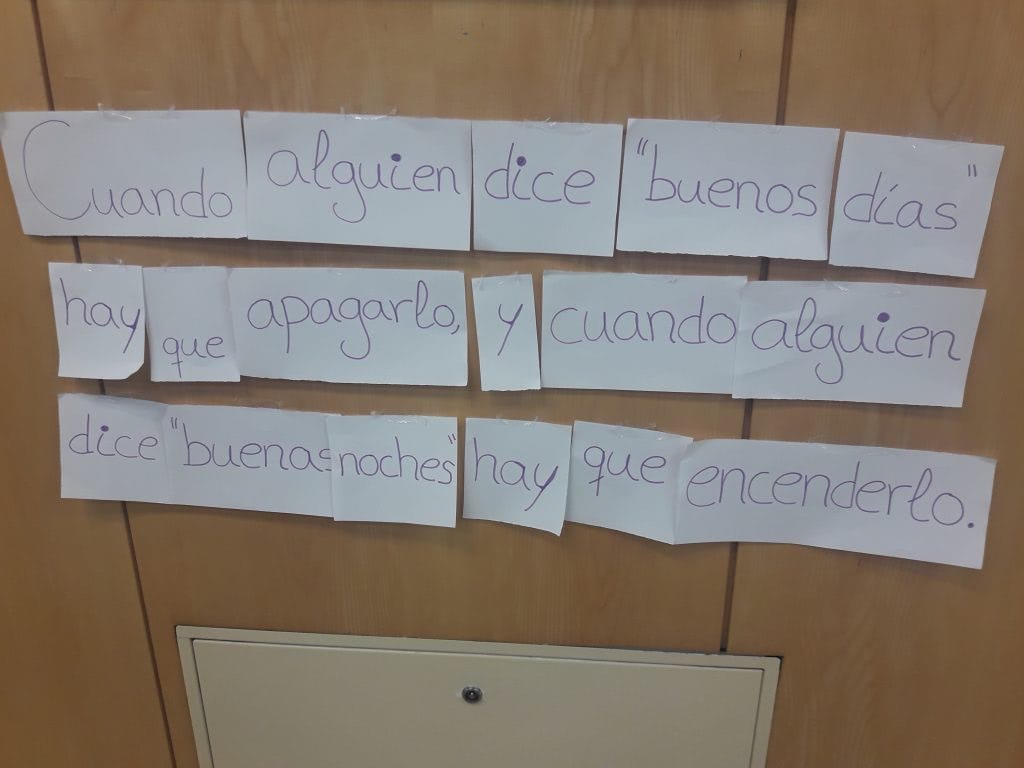 Cuando alguien dice "buenos días"
hay que apagarlo, y cuando alguien
dice "buenas noches" hay que encenderlo.